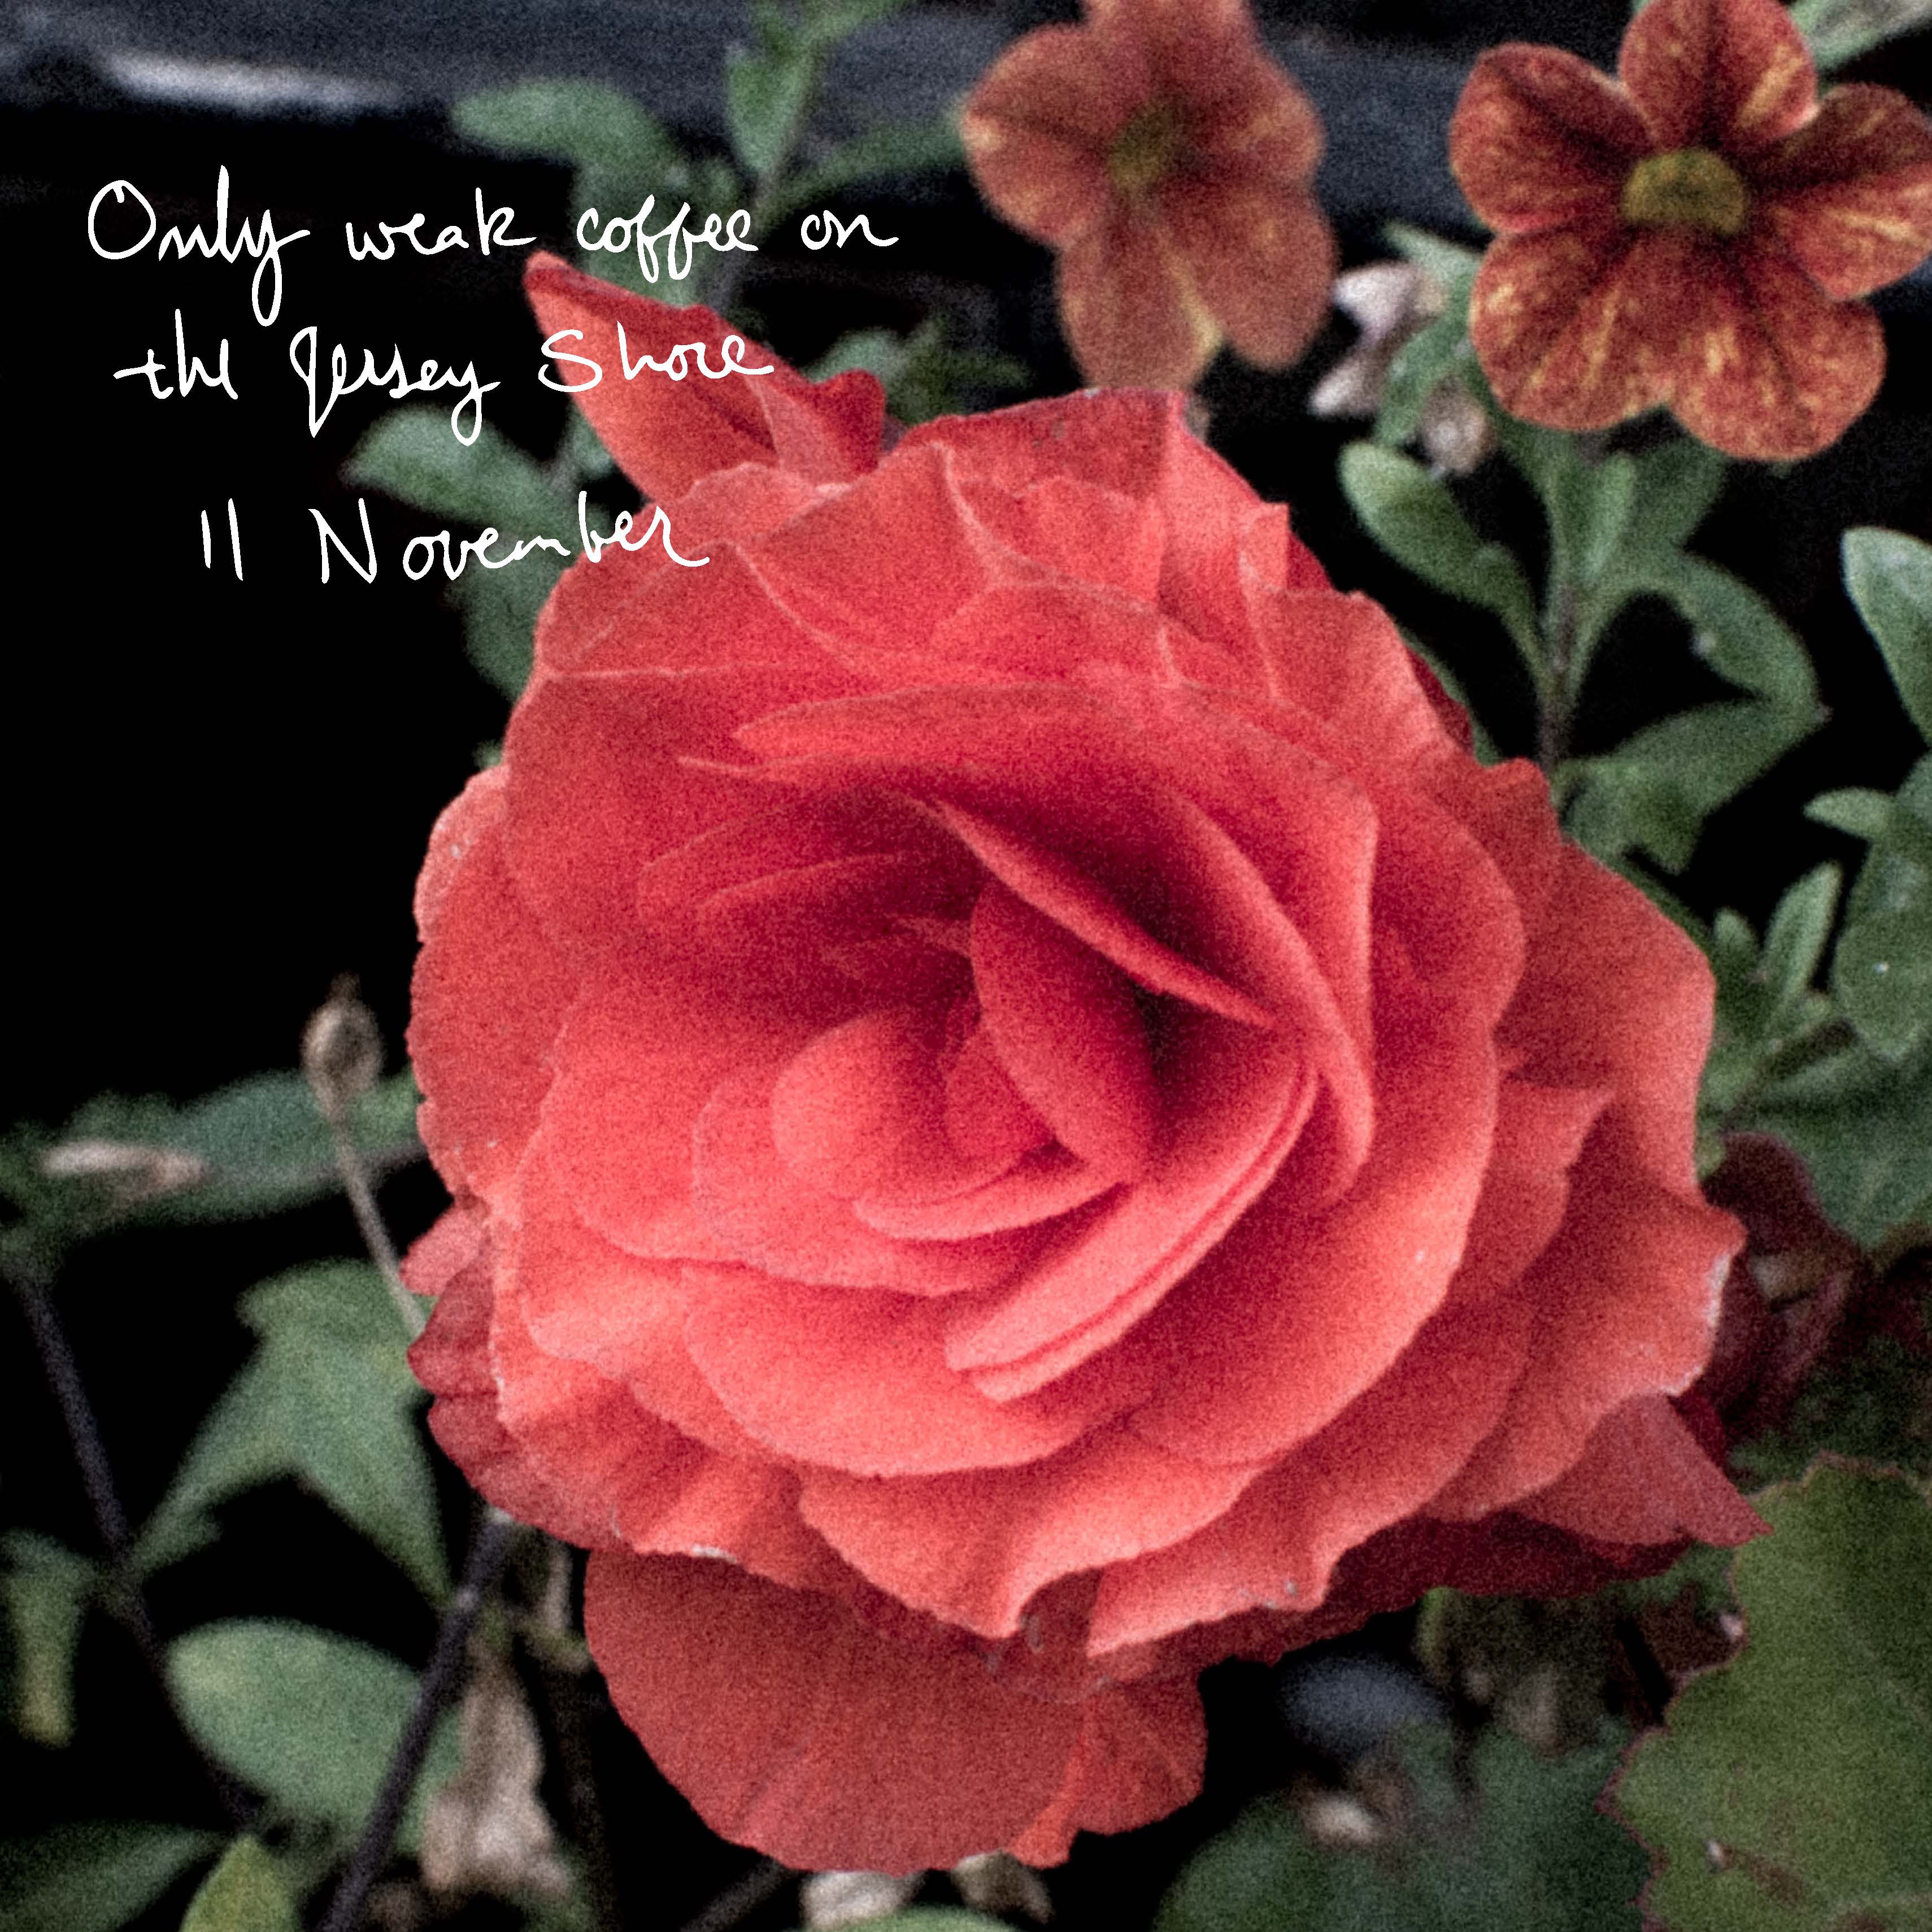 Only weak coffee on
the Jersey Shore
11 November